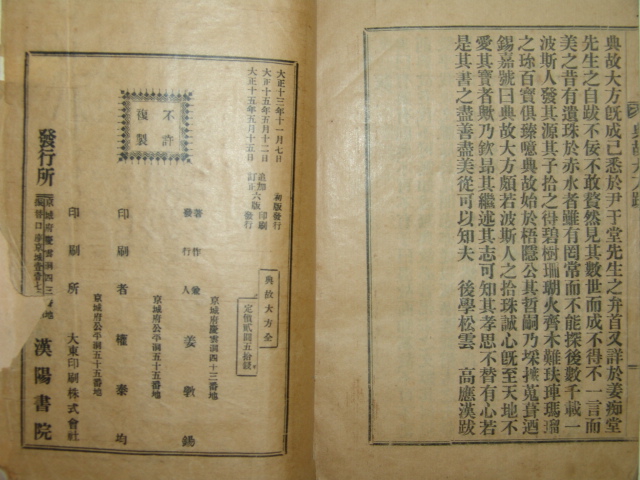 典故大方跋
典故大方旣成已悉於尹于堂先生之弁首又詳於姜痴堂
先生之自跋不佞不敢贅然見其數世而成不得不一言而
美之昔有遺珠於赤水者雖有罔常而不能探後數千載一
波斯人發其源其子拾之得碧樹珊瑚火齊木難玞琿瑪瑠
之珎百寶俱臻噫典故始於梧隱公其哲嗣乃埰㨿蒐葺迺
錫嘉號曰典故大方頗若波斯人之拾珠誠心旣至天地不
愛其寶者歟乃欽昻其繼述其志可知其孝思不替有心若
是其書之盡善盡美從可以知夫 後學松雲 高應漢跋
大正十三年十一月七日 初版發行
大正十五年五月十二日 追加印刷
大正十五年五月十五日 訂正六版發行
不許
複製
典故大方全
定價貳圓五拾錢
京城府慶雲洞四十三番地
著作兼
發行人 姜斅錫
京城府公平洞五十五番地
印刷者 權泰均
京城府公平洞五十五番地
印刷所 大東印刷株式會社
京城府慶雲洞四三番地
發行所 漢陽書院
振替口座京城壹壹七